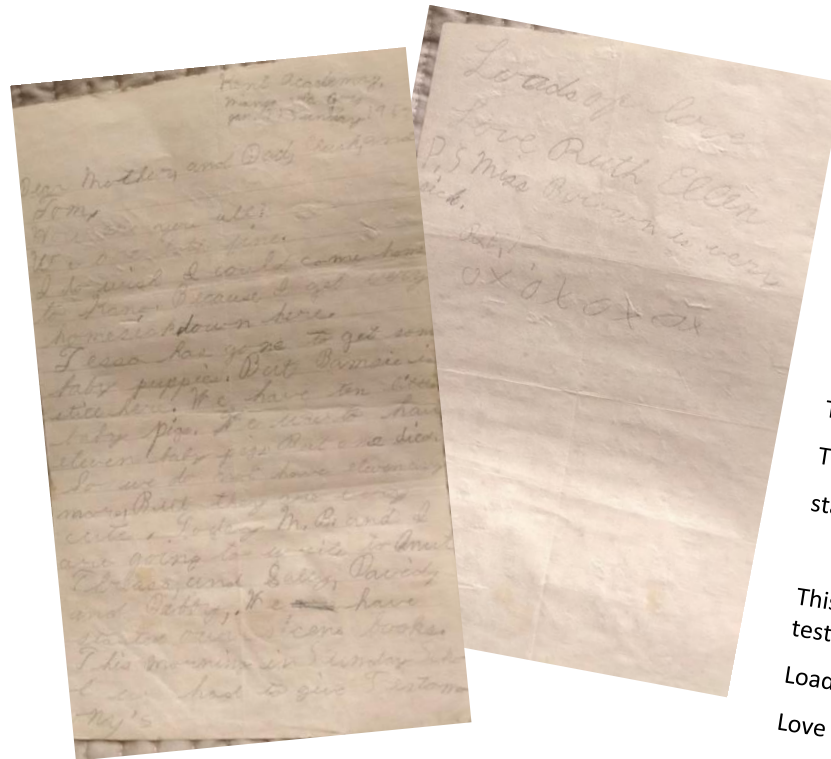 Kent Academy,
Dear Mother, and Dad, and
Tom,
How are you all?
We are fine.
I do wish I could come home
to Kano. Because I get very
homesick down here.
Tessa has gone to get some
baby puppies. But is
still here. We have ten
baby pigs. We use to have
eleven baby pigs But one died.
So we do not have eleven any
more, But they are very
cute. Today M. B. and I
are going to write to Aunt
and Sally, David,
and We have
our books.
This morning in Sunday
had to give Testamo
ny's
Loads of love
Love Ruth Ellen
P.S Miss is very
sick.
ox ox ox ox
T
T
sta
This
test
Load
Love